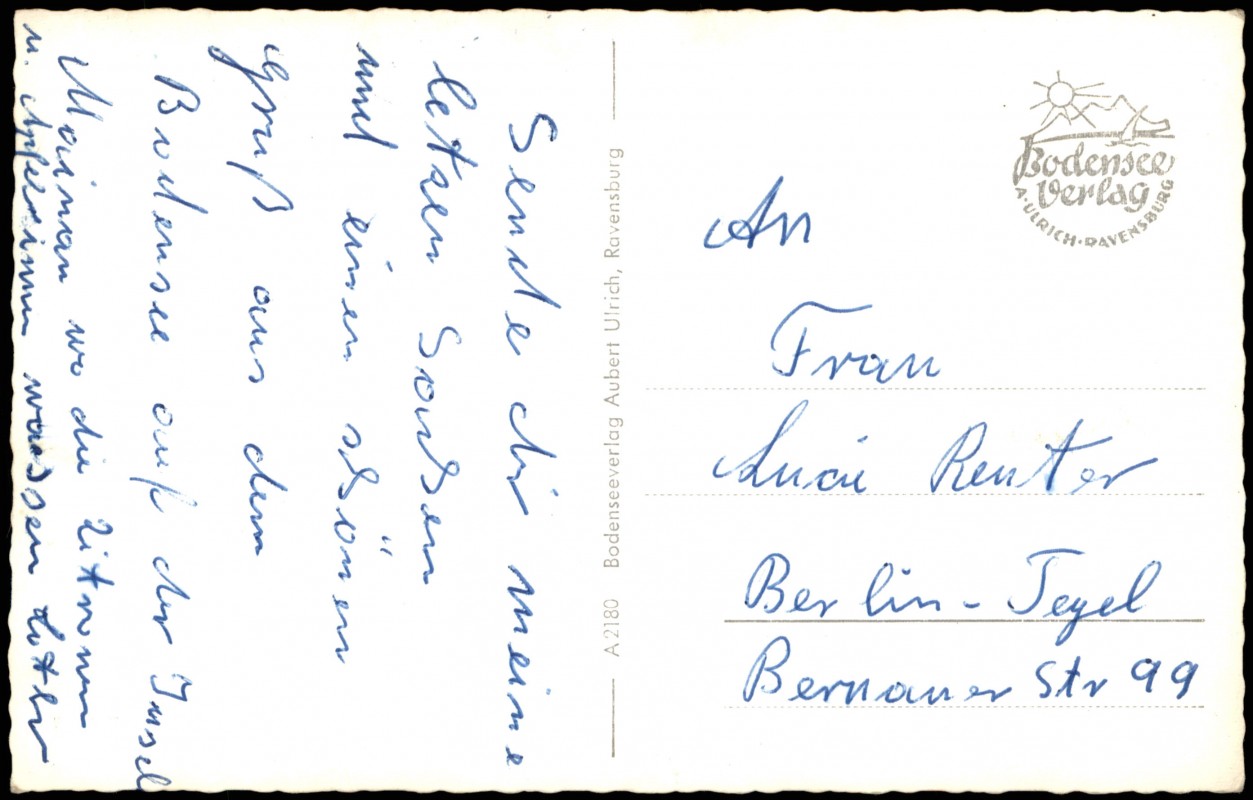 Sende dir meine
letzen Sachen
und einen schönen
Gruß aus dem
Bodensee auf der Insel
Mainau wo die Zitronen
u. Apfelsinen wassen Lotti
A 2180 Bodenseeverlag Aubert Ulrich, Ravensburg
Bodensee
Verlag
A·ULRICH·RAVENSBURG
An
Frau
Lucie Renter
Berlin - Tegel
Bernauer Str 99